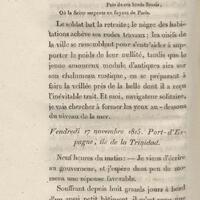 Puis de ces bords fleuris,
Où la Seine serpente en fuyant de Paris.
Le soldat bat la retraite; le nègre des habi-
tations achève ses rudes travaux; les oisifs de
la ville se rassemblent pour s'entr'aider à sup-
porter le poids de leur nullité, tandis que le
jeune amant indien prélude aux airs de
son chalumeau rustique, ou se prépare à
faire la veillée près de la belle dont il a reçu
l'inévitable trait. Et moi, voyageur solitaire, je
vais chercher à fermer les yeux au-dessous
du niveau de la mer.
Vendredi 17 novembre 1815. Port-d'Es-
pagne, île de la Trinidad.
Neuf heures du matin: — Je viens d'écrire
au gouverneur, et j'espère dans peu de mo-
mens une réponse favorable.
Souffrant depuis huit grands jours à bord
d'un petit bâtiment, il m'est venu